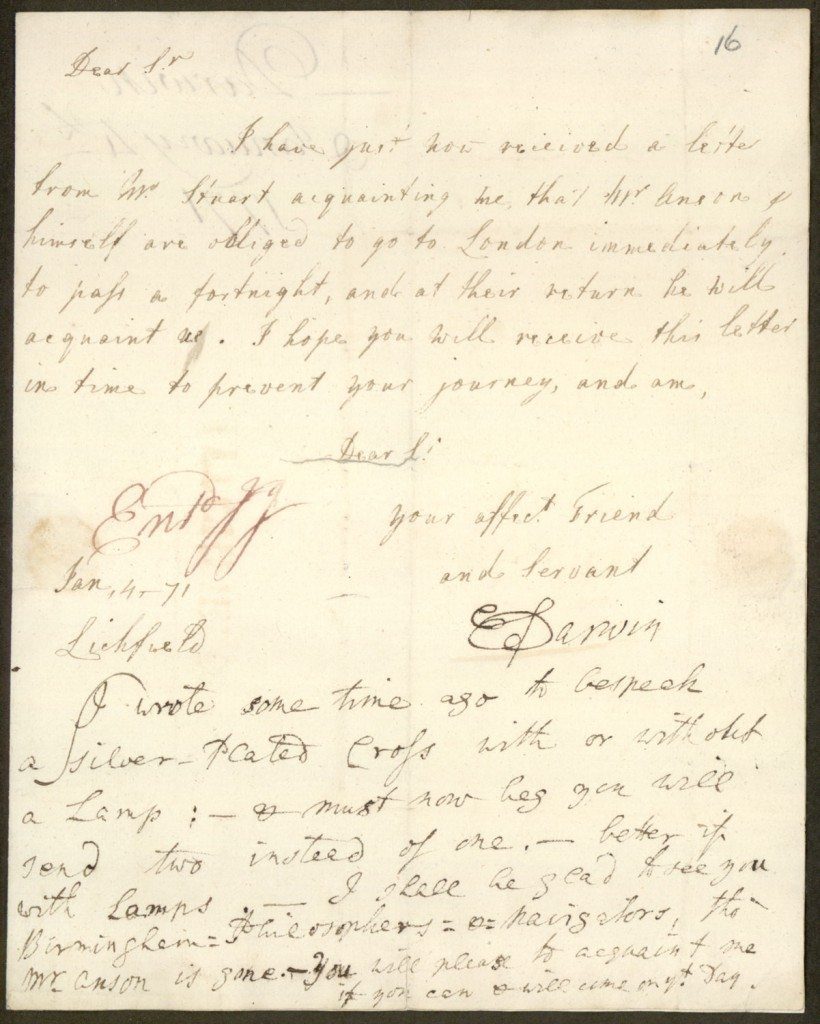 16
Dear Sr
I have just now received a letter
from Mr Stuart acquainting me, that Mr Anson &
himself are obliged to go to London immediately
to pass a fortnight, and at their return he will
acquaint us. I hope you will receive this letter
in time to prevent your journey, and am,
Dear Sr
your affect. Friend
and Servant
EDarwin
Entd
Jan, 4-71
Lichfield
I wrote some time ago to bespeak
a silver-plated Cross with or without
a Lamp: - & must now beg you will
send two instead of one. - better if
with Lamps. - I shall be glad to see you
Birmingham = Philosophers = & = Navigators, tho'
Mr. Anson is gone. - You will please to acquaint me
if you can & will come on yt. Day.